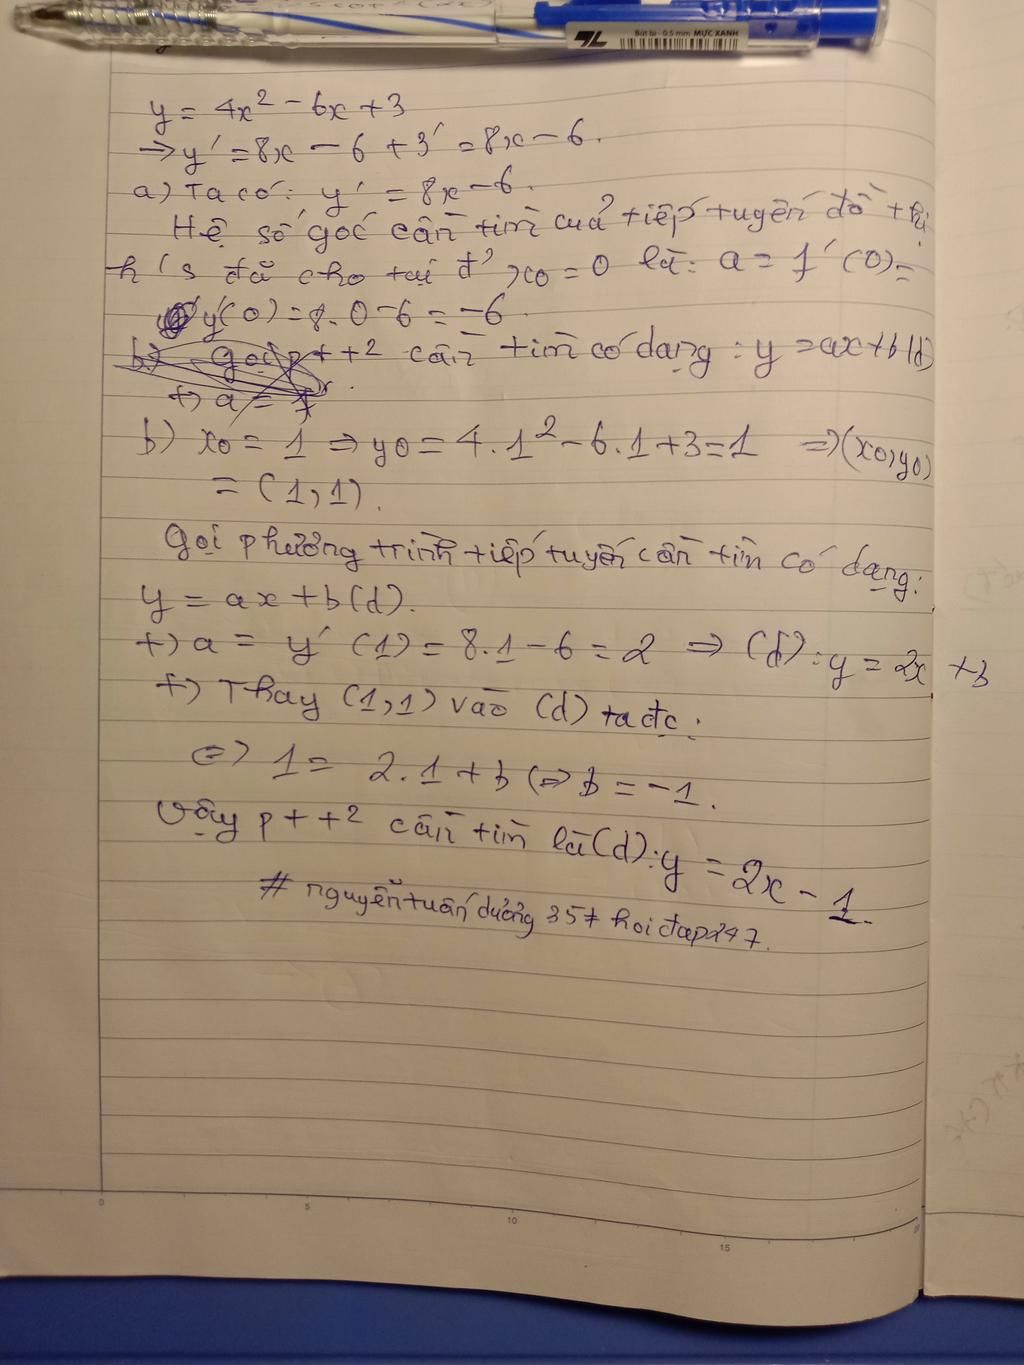 Bút bi - 0.5 mm MỰC XANH
y = 4x² - 6x + 3
=> y' = 8x - 6 + 3' = 8x - 6.
a) Ta có: y' = 8x - 6.
Hệ số góc cần tìm của tiếp tuyến đồ thị
h/s đã cho tại đ' x0 = 0 là: a = f'(0) =
y'(0) = 8.0 - 6 = -6.
b) Gọi ptt² cần tìm có dạng: y = ax + b (d)
+) a = f
b) x0 = 1 => y0 = 4.1² - 6.1 + 3 = 1 => (x0, y0)
= (1, 1).
Gọi phương trình tiếp tuyến cần tìm có dạng:
y = ax + b (d).
+) a = y'(1) = 8.1 - 6 = 2 => (d): y = 2x + b
+) Thay (1, 1) vào (d) ta đc:
<=> 1 = 2.1 + b <=> b = -1.
Vậy ptt² cần tìm là (d): y = 2x - 1.
# nguyễn tuấn dưởng 357 hoi đap 247.
0 5 10 15